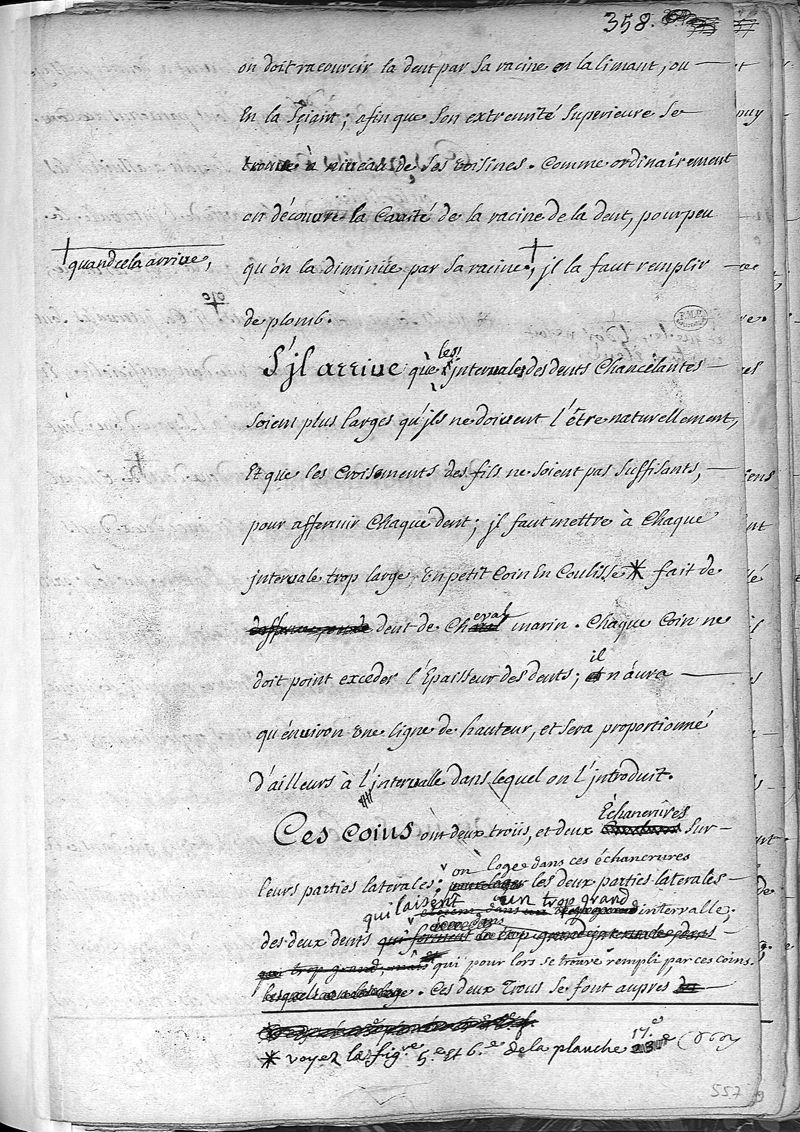 358.
on doit racourcir la dent par sa racine en la limant, ou
En la sçiant; afin que son extremité superieure se
trouve à niveau de ses voisines. Comme ordinairement
on découvre la Cavité de la racine de la dent, pour peu
† quand cela arrive,
qu'on la diminüe par sa racine †, jl la faut remplir
de plomb.
S'jl arrive que les jntervales des dents Chancelantes
soient plus larges qu'jls ne doivent l'être naturellement,
Et que les Croisements des fils ne soient pas suffisants,
pour affermir Chaque dent; jl faut mettre à Chaque
jntervale trop large, un petit Coin En Coulisse * fait de
dent de Cheval marin. Chaque Coin ne
doit point exceder l'Epaisseur des dents; il n'aura
qu'environ une ligne de hauteur, et sera proportionné
d'ailleurs à l'jntervalle dans lequel on l'jntroduit.
Ces coins ont deux troüs, et deux Échancrures sur
leurs parties laterales; on loge dans ces échancrures les deux parties laterales
des deux dents qui laisent un trop grand intervalle;
qui pour lors se trouve rempli par ces coins.
Ces deux Trous se font auprès
* voyez la fig.re 5.e et 6.e de la planche 17.e
557